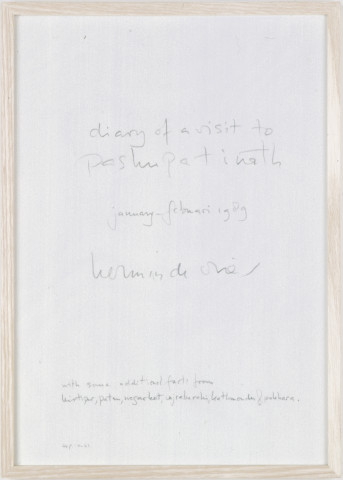 diary of a visit to
pashupatinath
january-februari 1989
herman de vries
with some additional facts from
kirtipur, patan, nagarkot, kathmandu & pokhara.